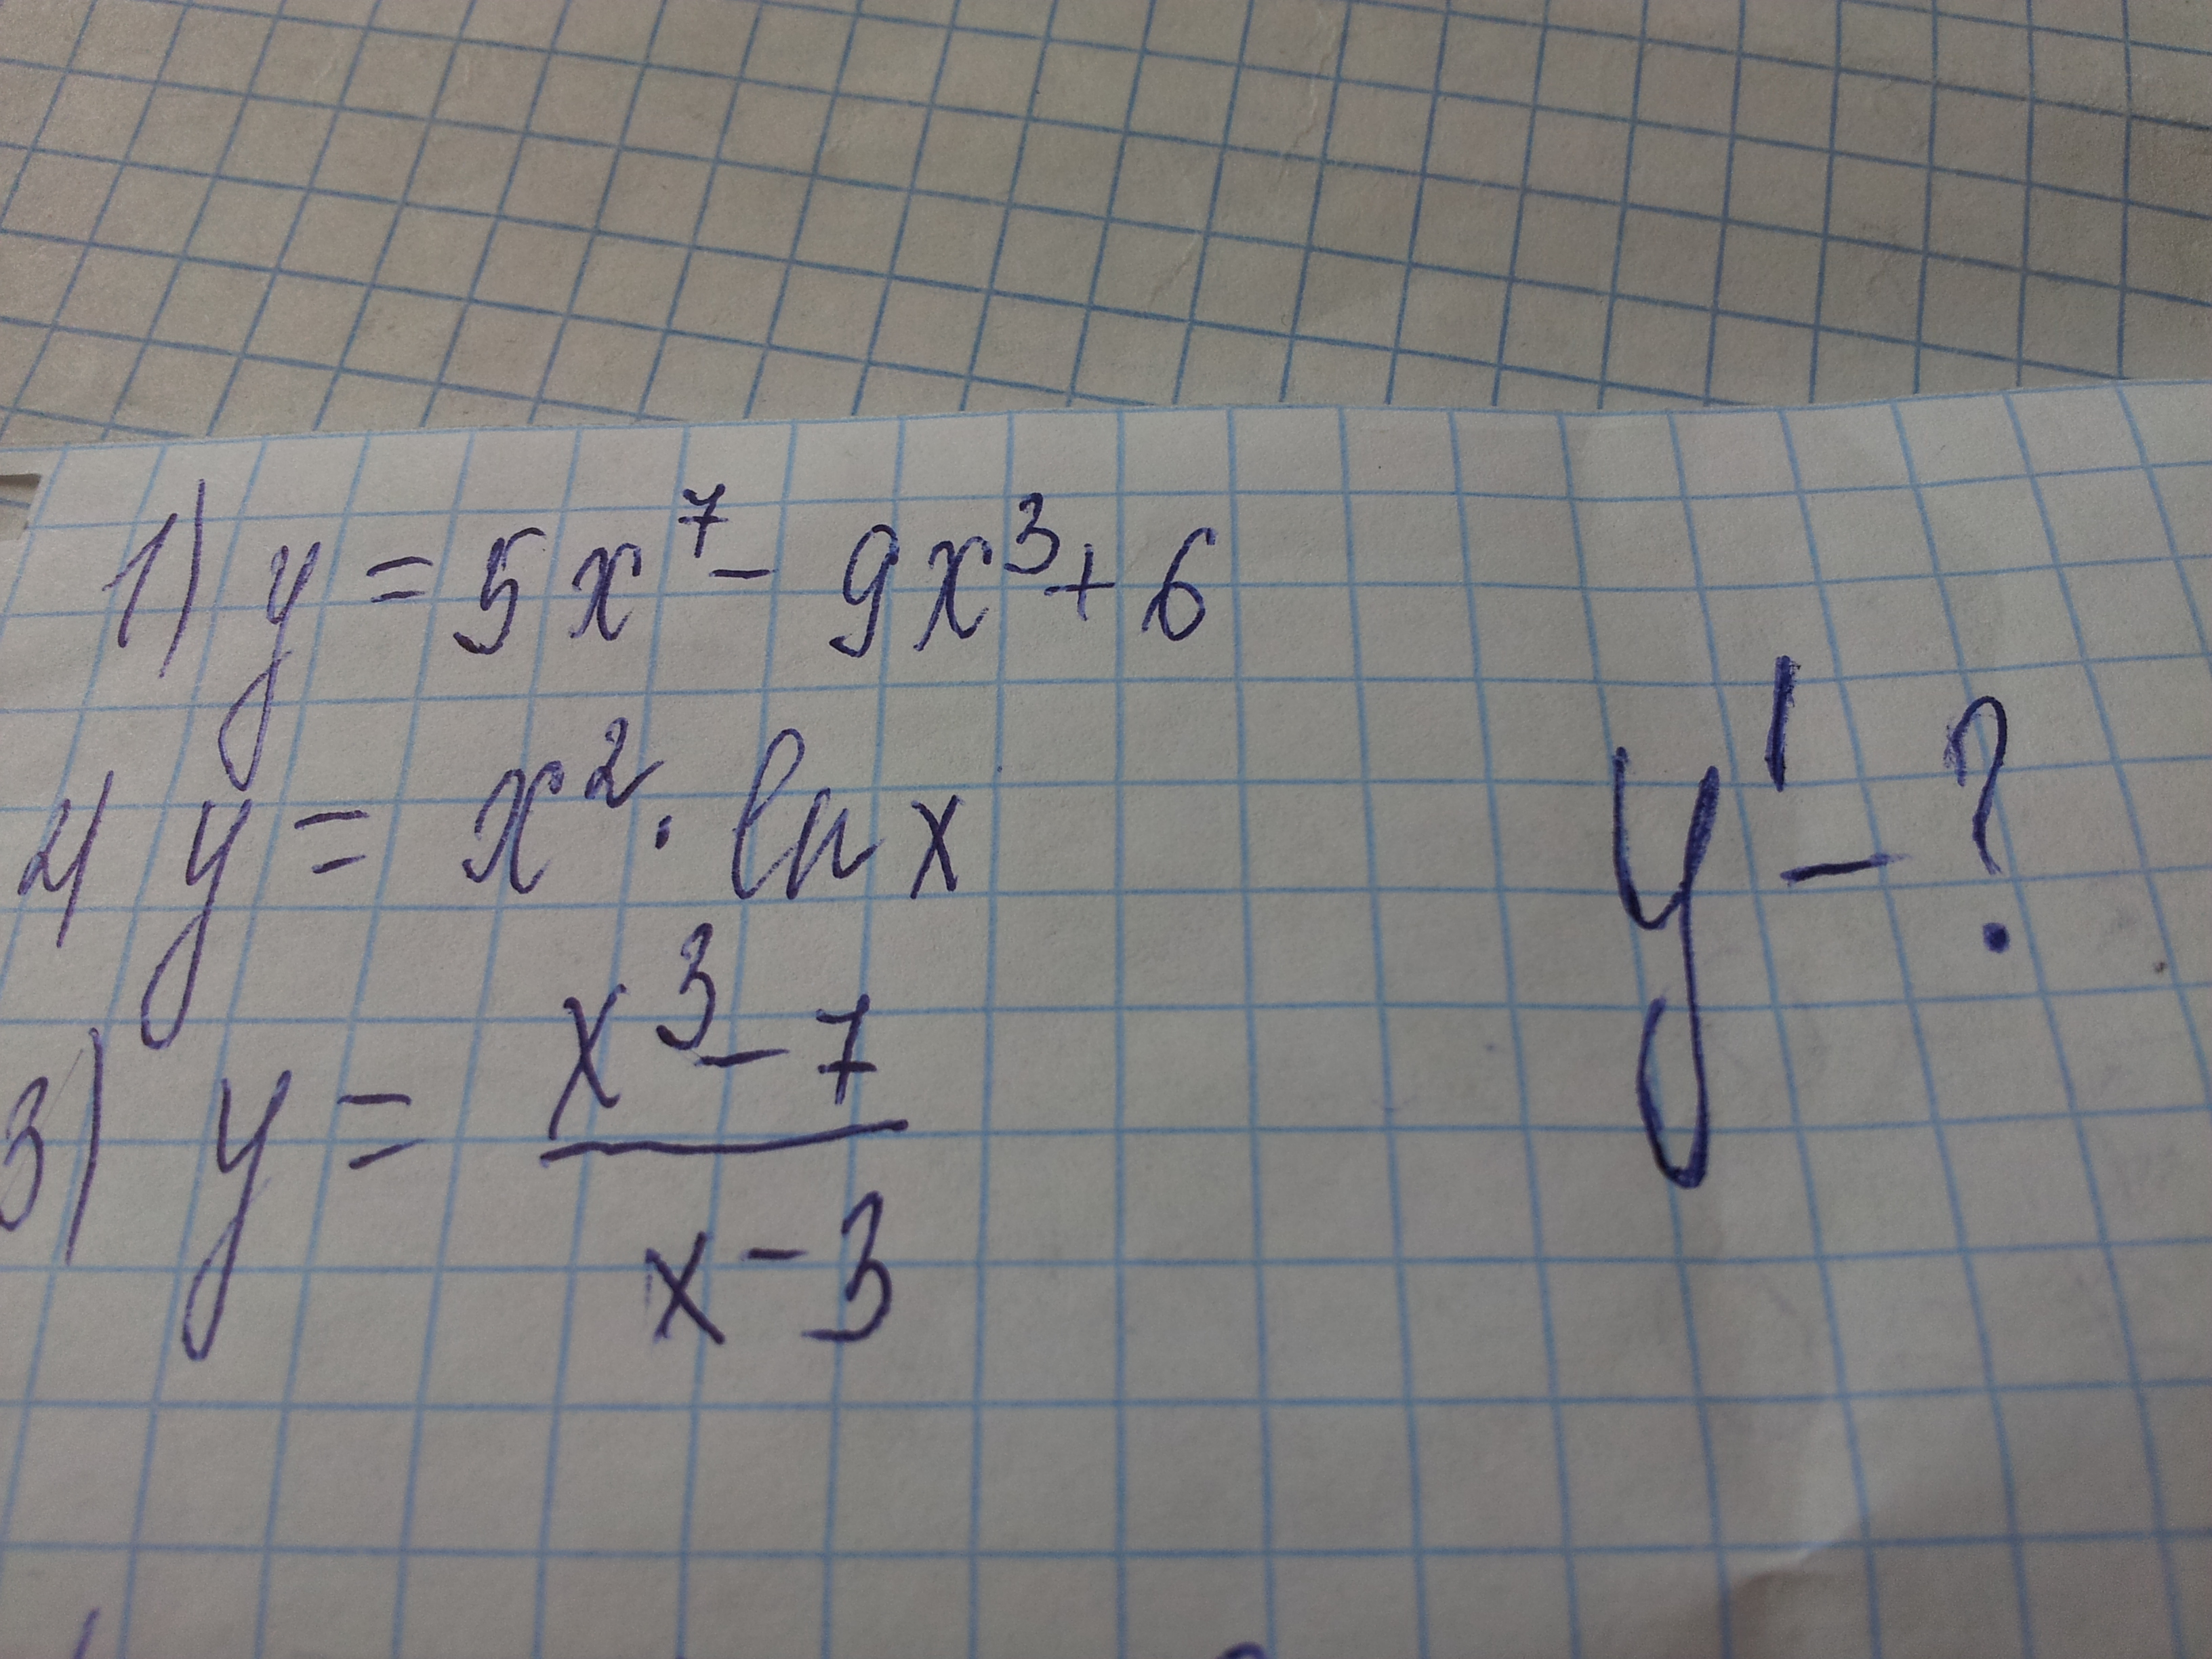 1) y = 5x⁷ - 9x³ + 6
2) y = x² · ln x
y' - ?
3) y = (x³ - 7) / (x - 3)